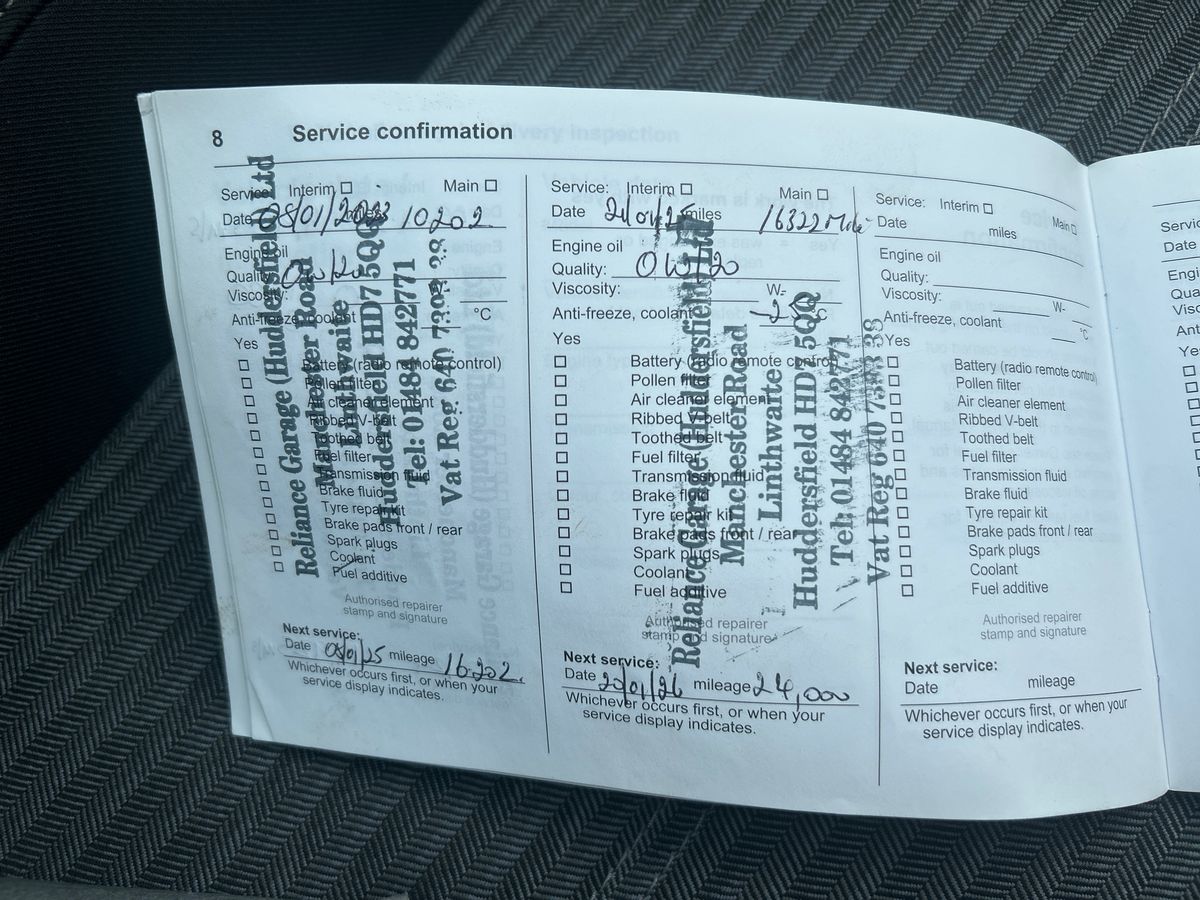 8 Service confirmation
Service: Interim Main
Date 08/01/2023 miles 10202
Engine oil
Quality: 0W/20
Viscosity:
Anti-freeze, coolant °C
Yes
Battery (radio remote control)
Pollen filter
Air cleaner element
Ribbed V-belt
Toothed belt
Fuel filter
Transmission fluid
Brake fluid
Tyre repair kit
Brake pads front / rear
Spark plugs
Coolant
Fuel additive
Authorised repairer
stamp and signature
Reliance Garage (Huddersfield) Ltd
Manchester Road
Linthwaite
Huddersfield HD7 5QQ
Tel: 01484 842771
Vat Reg 640 7393 38
Next service:
Date 08/01/25 mileage 16202
Whichever occurs first, or when your
service display indicates.
Service: Interim Main
Date miles 16322 Miles
Engine oil
Quality: 0W/20
Viscosity: W-
Anti-freeze, coolant -25°C
Yes
Battery (radio remote control)
Pollen filter
Air cleaner element
Ribbed V-belt
Toothed belt
Fuel filter
Transmission fluid
Brake fluid
Tyre repair kit
Brake pads front / rear
Spark plugs
Coolant
Fuel additive
Authorised repairer
stamp and signature
Reliance Garage (Huddersfield) Ltd
Manchester Road
Linthwaite
Huddersfield HD7 5QQ
Tel: 01484 842771
Vat Reg 640 7393 38
Next service:
Date 20/01/26 mileage 24,000
Whichever occurs first, or when your
service display indicates.
Service: Interim Main
Date miles
Engine oil
Quality:
Viscosity: W-
Anti-freeze, coolant °C
Yes
Battery (radio remote control)
Pollen filter
Air cleaner element
Ribbed V-belt
Toothed belt
Fuel filter
Transmission fluid
Brake fluid
Tyre repair kit
Brake pads front / rear
Spark plugs
Coolant
Fuel additive
Authorised repairer
stamp and signature
Next service:
Date mileage
Whichever occurs first, or when your
service display indicates.
Date